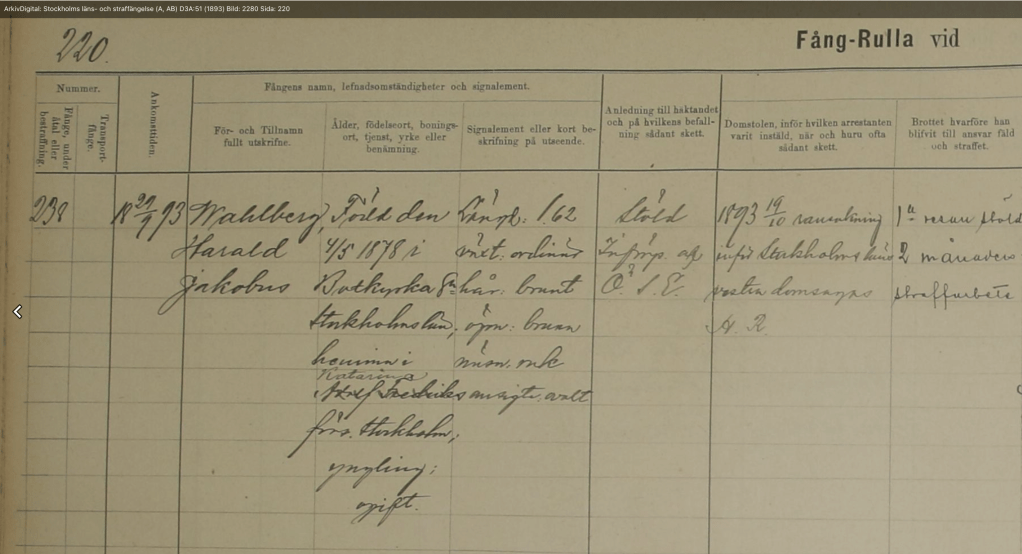 ArkivDigital: Stockholms läns- och straffängelse (A, AB) D3A:51 (1893) Bild: 2280 Sida: 220
220.
Fång-Rulla vid
Nummer.
Fånge, under åtal eller bestraffning.
Transport-fånge.
Ankomsttiden.
Fångens namn, lefnadsomständigheter och signalement.
För- och Tillnamn
fullt utskrifne.
Ålder, födelseort, bonings-
ort, tjenst, yrke eller
benämning.
Signalement eller kort be-
skrifning på utseende.
Anledning till häktandet
och på hvilkens befall-
ning sådant skett.
Domstolen, inför hvilken arrestanten
varit instäld, när och huru ofta
sådant skett.
Brottet hvarföre han
blifvit till ansvar fäld
och straffet.
238
18 /9 93
Wahlberg,
Harald
Jakobus
Född den
4/5 1878 i
Botkyrka
Stockholms län,
hemma i
Katarina
Adolf Fredriks
förs. Stockholm;
yngling;
ogift.
Längd: 1,62
växt: ordinär
hår: brunt
ögon: bruna
näsa:
ansigte: ovalt
Stöld
af
1893 19/10 ransakning
inför Stockholms läns
vestra domsagas
H. R.
1a resan stöld
2 månaders
straffarbete